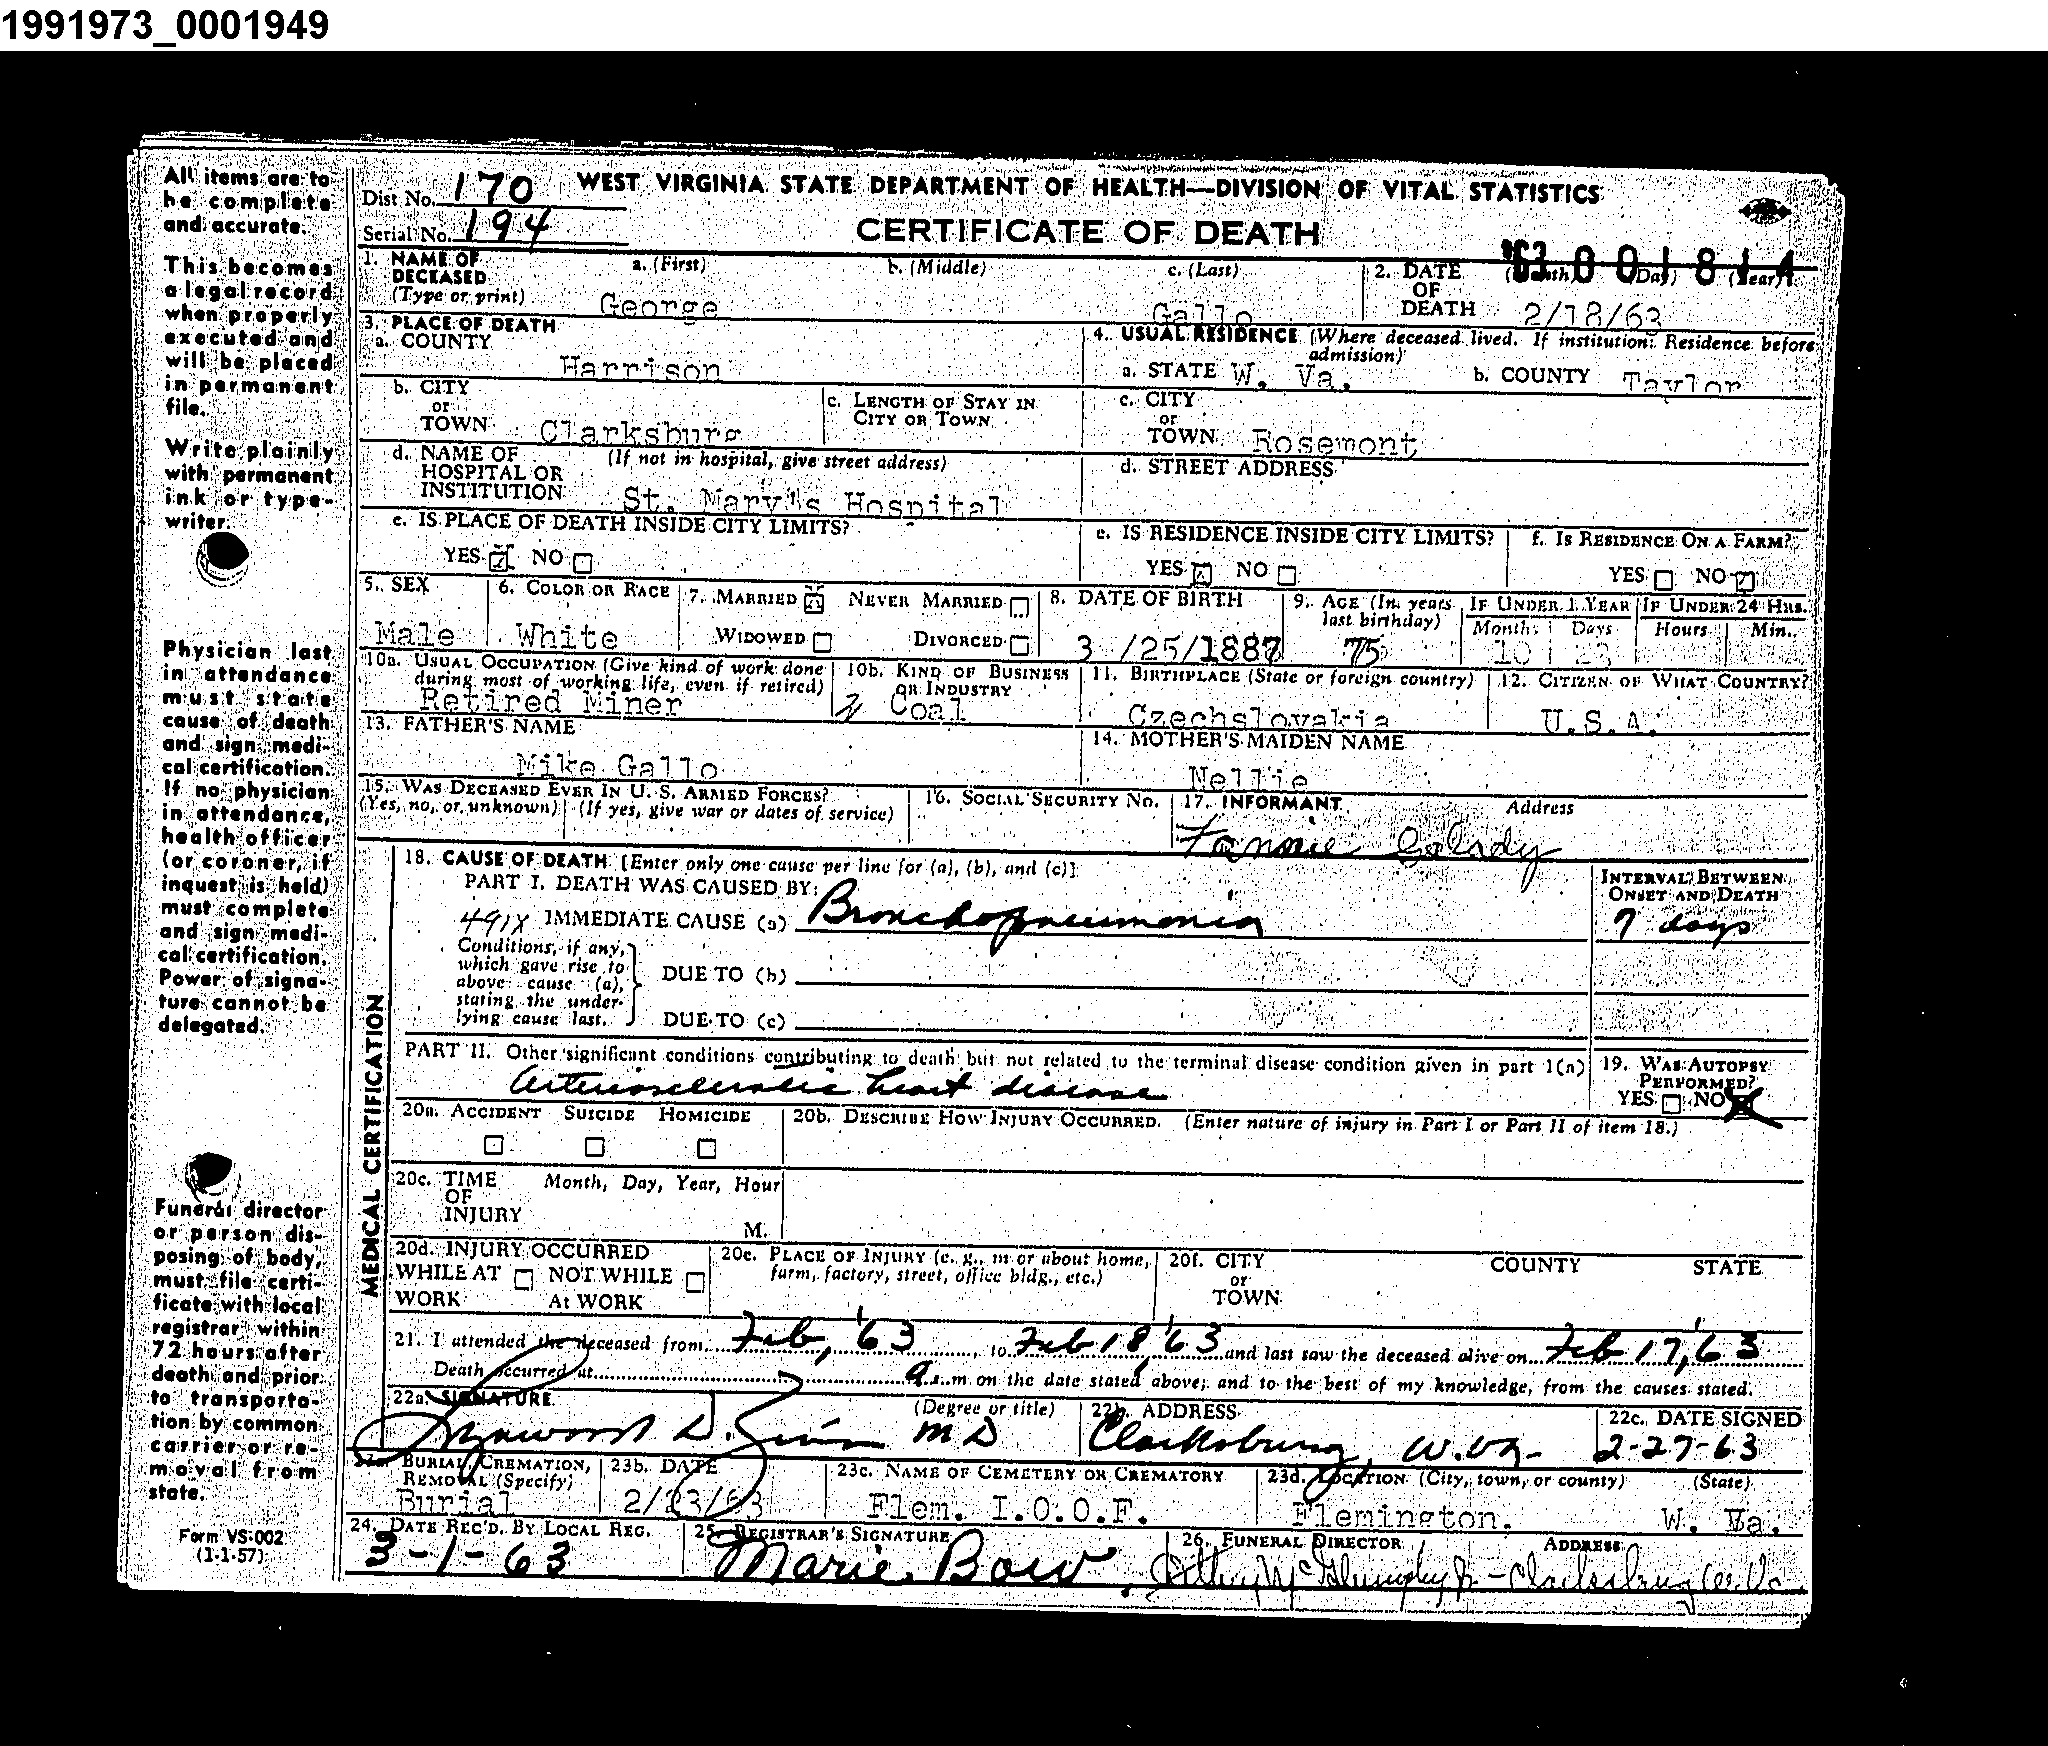 1991973_0001949
All items are to be complete and accurate.
This becomes a legal record when properly executed and will be placed in permanent file.
Write plainly with permanent ink or typewriter.
Physician last in attendance must state cause of death and sign medical certification. If no physician in attendance, health officer (or coroner, if inquest is held) must complete and sign medical certification. Power of signature cannot be delegated.
Funeral director or person disposing of body, must file certificate with local registrar within 72 hours after death and prior to transportation by common carrier or removal from state.
Form VS-002
(1-1-57)
Dist No. 170 WEST VIRGINIA STATE DEPARTMENT OF HEALTH—DIVISION OF VITAL STATISTICS
Serial No. 194 CERTIFICATE OF DEATH
1. NAME OF DECEASED (Type or print) a. (First) George b. (Middle) c. (Last) Gallo
2. DATE OF DEATH (Month) (Day) (Year) 2/18/63
3. PLACE OF DEATH
a. COUNTY Harrison
4. USUAL RESIDENCE (Where deceased lived. If institution: Residence before admission)
a. STATE W. Va. b. COUNTY Taylor
b. CITY or TOWN Clarksburg c. LENGTH OF STAY IN CITY OR TOWN
c. CITY or TOWN Rosemont
d. NAME OF HOSPITAL OR INSTITUTION (If not in hospital, give street address) St. Mary's Hospital
d. STREET ADDRESS
e. IS PLACE OF DEATH INSIDE CITY LIMITS? YES X NO
e. IS RESIDENCE INSIDE CITY LIMITS? YES X NO
f. IS RESIDENCE ON A FARM? YES NO
5. SEX Male
6. COLOR OR RACE White
7. MARRIED X NEVER MARRIED WIDOWED DIVORCED
8. DATE OF BIRTH 3 /25/1887
9. AGE (In years last birthday) 75 IF UNDER 1 YEAR Months 10 Days 23 IF UNDER 24 HRS. Hours Min.
10a. USUAL OCCUPATION (Give kind of work done during most of working life, even if retired) Retired Miner
10b. KIND OF BUSINESS OR INDUSTRY Coal
11. BIRTHPLACE (State or foreign country) Czechslovakia
12. CITIZEN OF WHAT COUNTRY? U.S.A.
13. FATHER'S NAME Mike Gallo
14. MOTHER'S MAIDEN NAME Nellie
15. WAS DECEASED EVER IN U. S. ARMED FORCES? (Yes, no, or unknown) (If yes, give war or dates of service)
16. SOCIAL SECURITY No.
17. INFORMANT Fannie Address
MEDICAL CERTIFICATION
18. CAUSE OF DEATH [Enter only one cause per line for (a), (b), and (c)]
PART I. DEATH WAS CAUSED BY:
INTERVAL BETWEEN ONSET AND DEATH
491X IMMEDIATE CAUSE (a) Bronchopneumonia 7 days
Conditions, if any, which gave rise to above cause (a), stating the underlying cause last.
DUE TO (b)
DUE TO (c)
PART II. Other significant conditions contributing to death but not related to the terminal disease condition given in part I(a)
Arteriosclerotic heart disease
19. WAS AUTOPSY PERFORMED? YES NO X
20a. ACCIDENT SUICIDE HOMICIDE
20b. DESCRIBE HOW INJURY OCCURRED. (Enter nature of injury in Part I or Part II of item 18.)
20c. TIME OF INJURY Month, Day, Year, Hour M.
20d. INJURY OCCURRED WHILE AT WORK NOT WHILE At WORK
20e. PLACE OF INJURY (e. g., in or about home, farm, factory, street, office bldg., etc.)
20f. CITY or TOWN COUNTY STATE
21. I attended the deceased from Feb, '63, to Feb 18, '63 and last saw the deceased alive on Feb 17, '63
Death occurred at a. m on the date stated above; and to the best of my knowledge, from the causes stated.
22a. SIGNATURE (Degree or title) M D
22b. ADDRESS Clarksburg W. Va.
22c. DATE SIGNED 2-27-63
23a. BURIAL, CREMATION, REMOVAL (Specify) Burial
23b. DATE 2/23/63
23c. NAME OF CEMETERY OR CREMATORY Flem. I.O.O.F.
23d. LOCATION (City, town, or county) (State) Flemington. W. Va.
24. DATE REC'D. BY LOCAL REG. 3-1-63
25. REGISTRAR'S SIGNATURE Marie Bow
26. FUNERAL DIRECTOR ADDRESS Clarksburg W. Va.